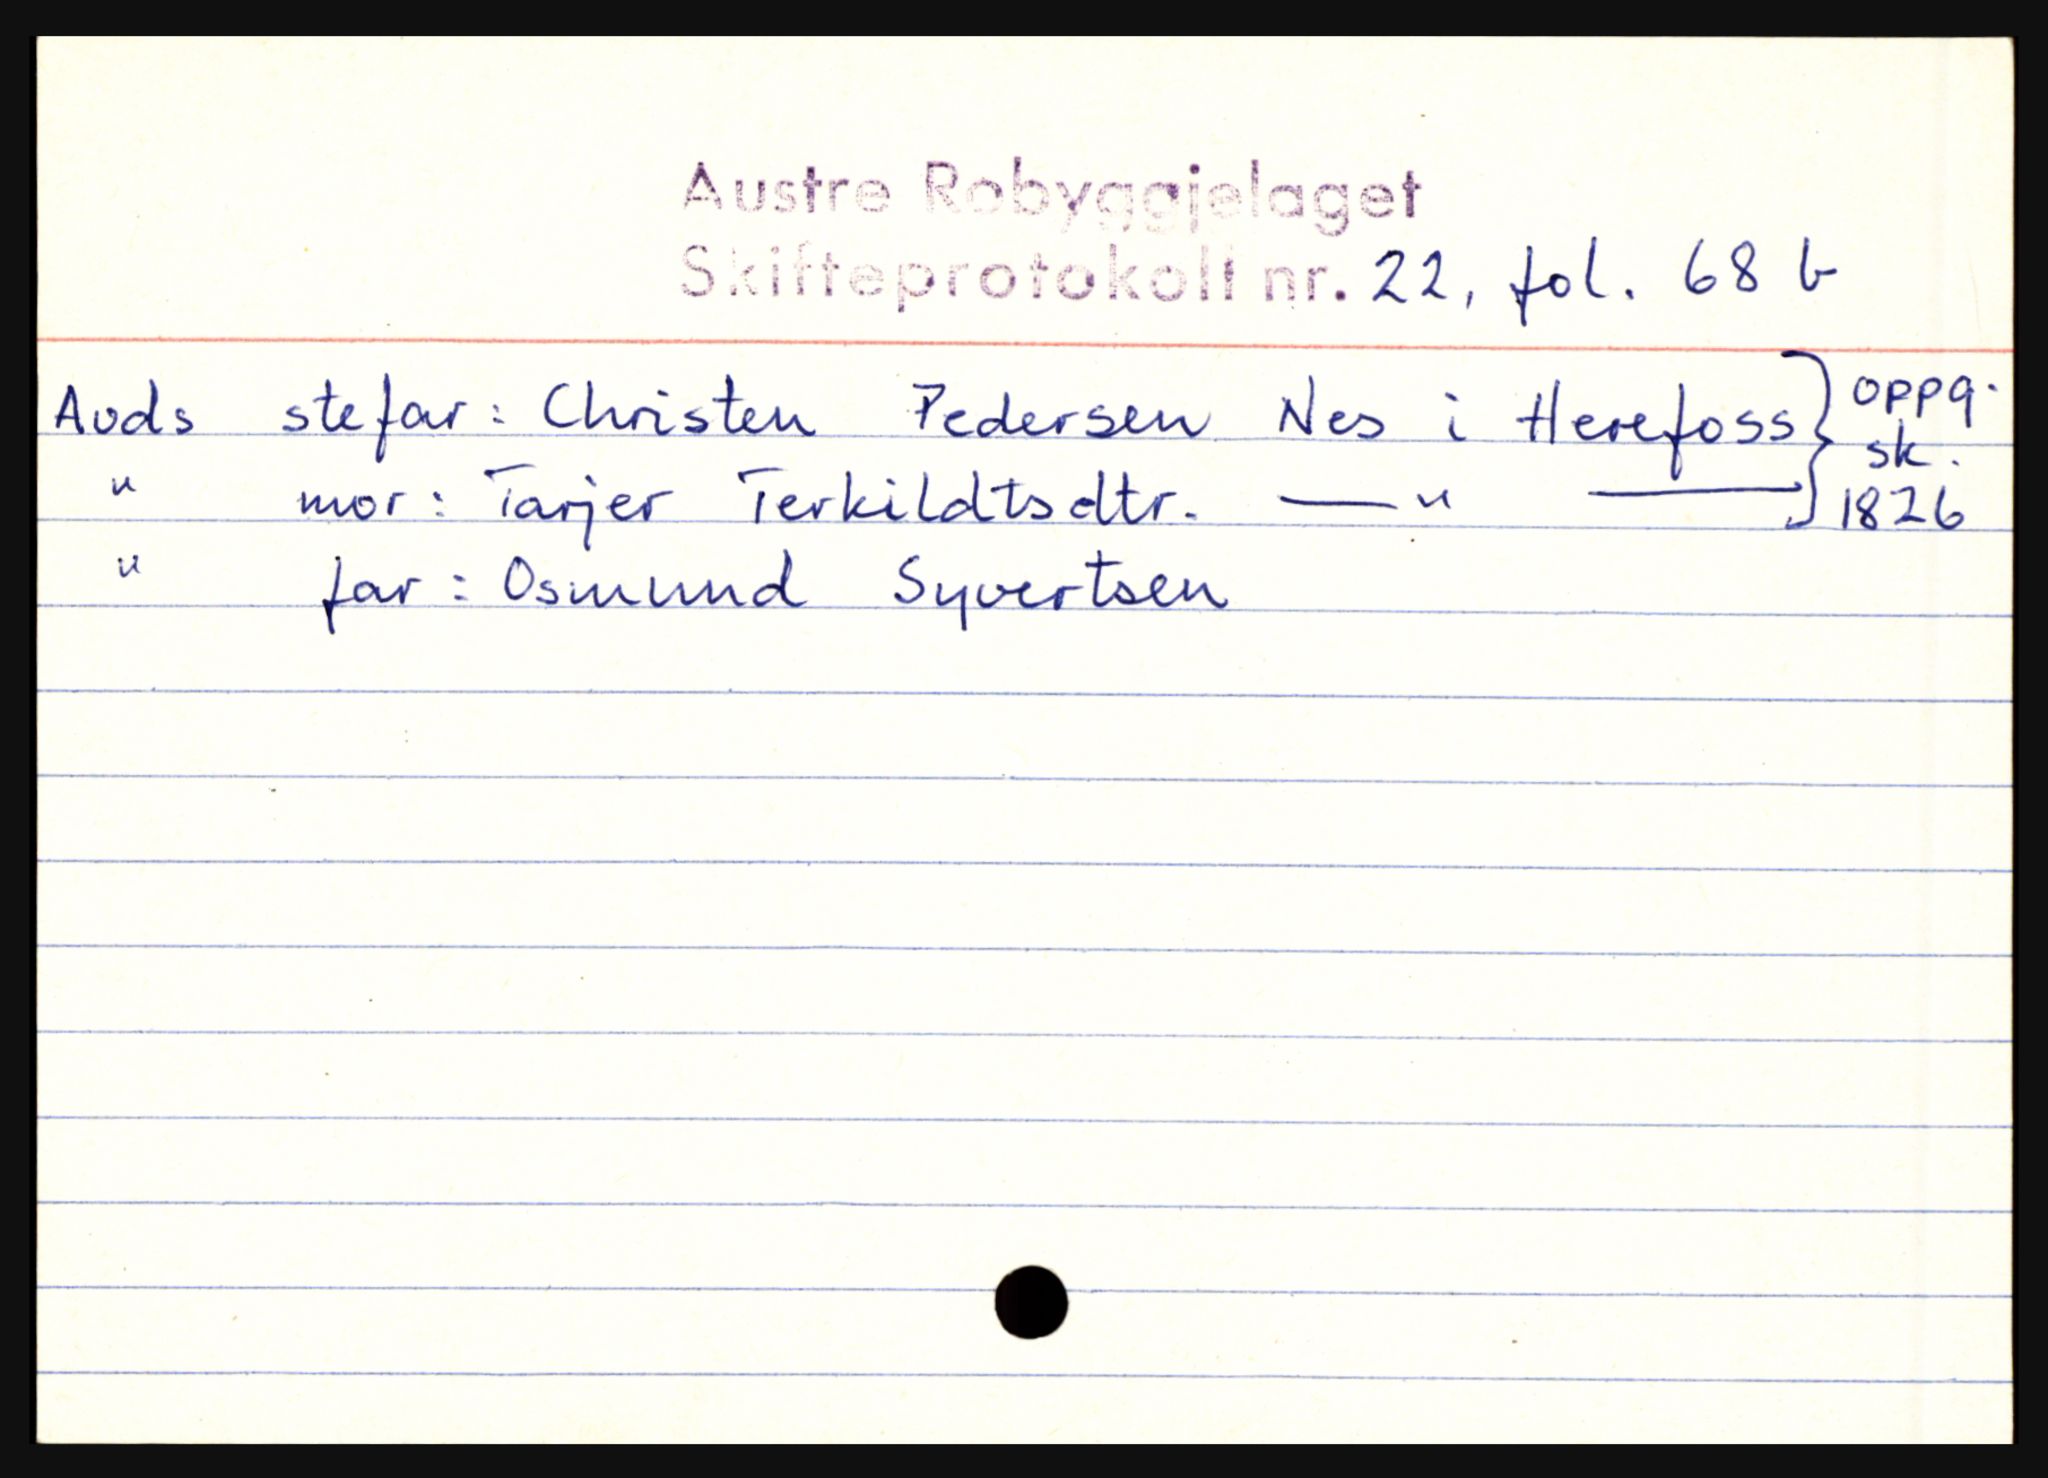 Austre Robyggjelaget
Skifteprotokoll nr. 22, fol. 68 b
Auds stefar: Christen Pedersen Nes i Herefoss } oppg.
sk.
" mor: Tarjer Terkildtsdtr. —— " —— 1826
" far: Osmund Syvertsen